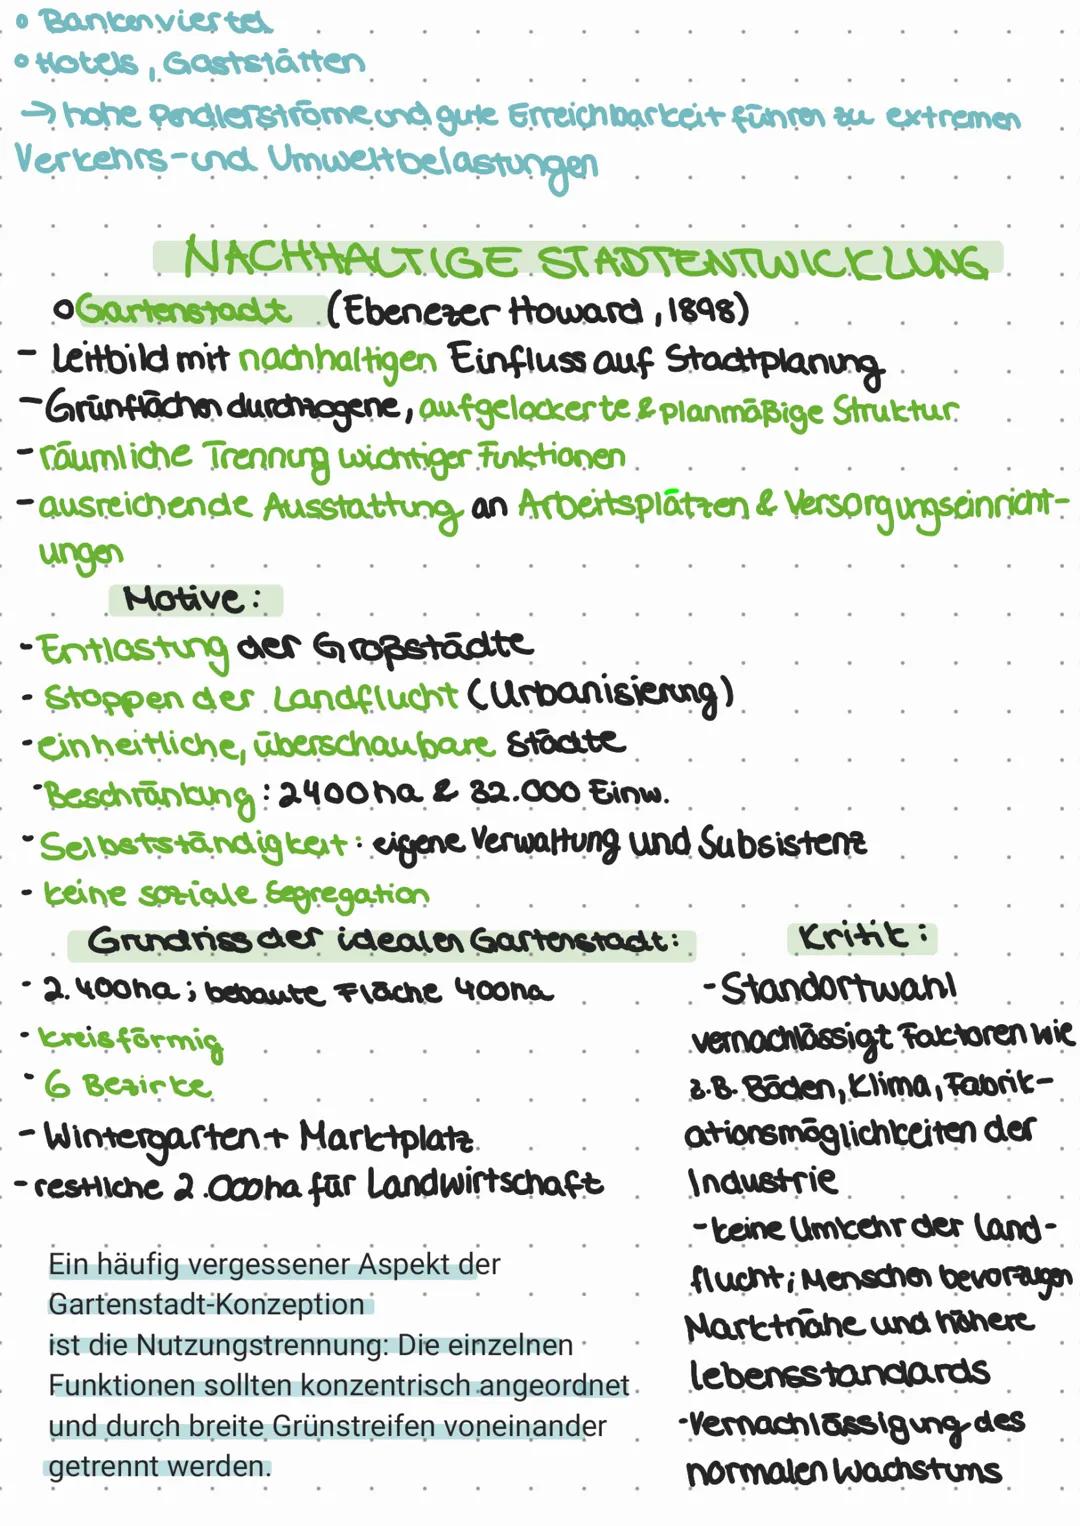 ∘ Bankenviertel
∘ Hotels, Gaststätten
→ hohe Pendlerströme und gute Erreichbarkeit führen zu extremen
Verkehrs- und Umweltbelastungen
NACHHALTIGE STADTENTWICKLUNG
∘ Gartenstadt (Ebenezer Howard, 1898)
- Leitbild mit nachhaltigen Einfluss auf Stadtplanung
- Grünflächen durchzogene, aufgelockerte & planmäßige Struktur
- räumliche Trennung wichtiger Funktionen
- ausreichende Ausstattung an Arbeitsplätzen & Versorgungseinricht-
ungen
Motive:
- Entlastung der Großstädte
- Stoppen der Landflucht (Urbanisierung)
- einheitliche, überschaubare Städte
- Beschränkung: 2400ha & 32.000 Einw.
- Selbstständigkeit: eigene Verwaltung und Subsistenz
- keine soziale Segregation
Grundriss der idealen Gartenstadt:
- 2.400ha; bebaute Fläche 400ha
- kreisförmig
- 6 Bezirke
- Wintergarten + Marktplatz
- restliche 2.000ha für Landwirtschaft
Ein häufig vergessener Aspekt der
Gartenstadt-Konzeption
ist die Nutzungstrennung: Die einzelnen
Funktionen sollten konzentrisch angeordnet
und durch breite Grünstreifen voneinander
getrennt werden.
Kritik:
- Standortwahl
vernachlässigt Faktoren wie
z.B. Böden, Klima, Fabrik-
ationsmöglichkeiten der
Industrie
- keine Umkehr der Land-
flucht; Menschen bevorzugen
Marktnähe und höhere
Lebensstandards
- Vernachlässigung des
normalen Wachstums